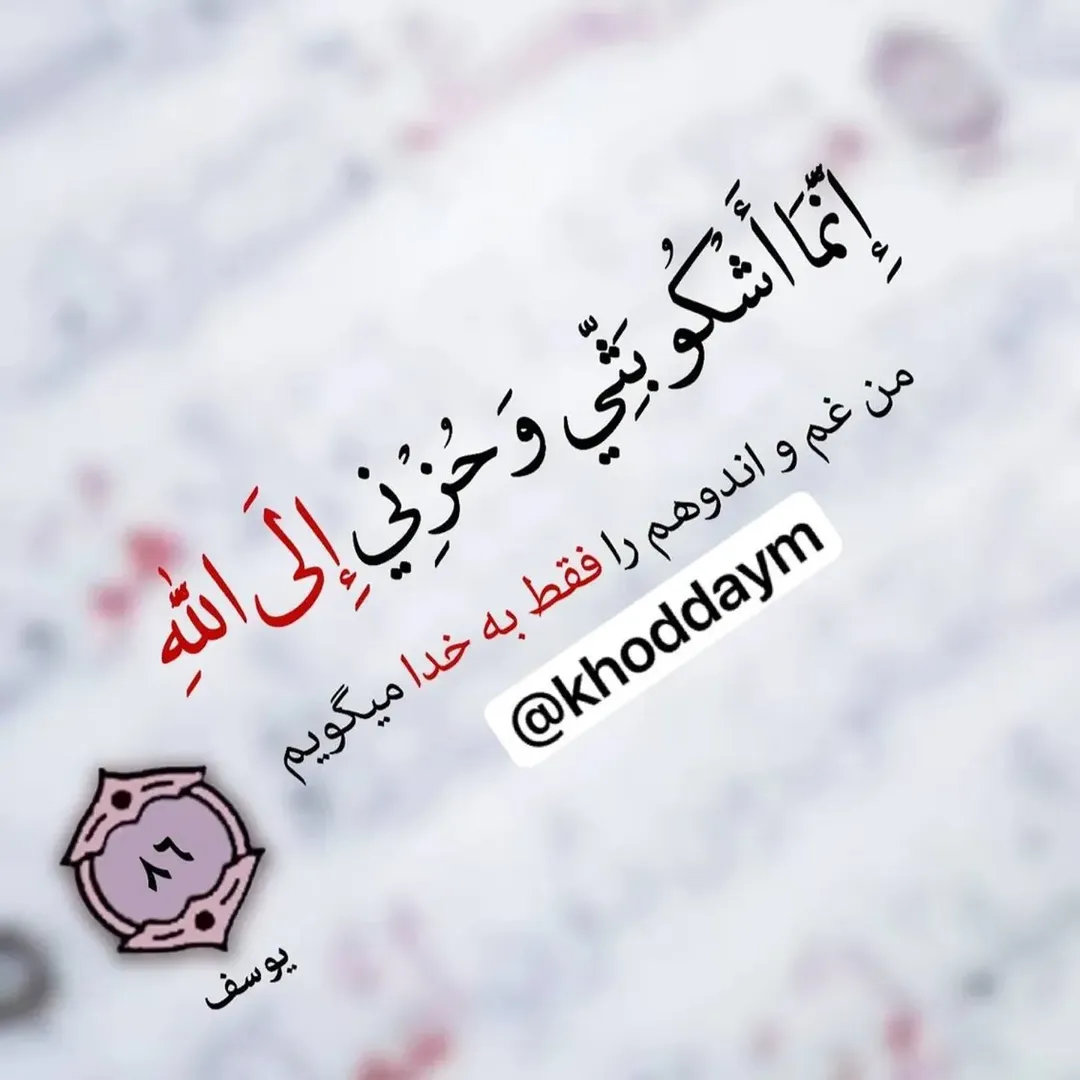 إِنَّمَا أَشْكُو بَثِّي وَ حُزْنِي إِلَى اللَّهِ
من غم و اندوهم را فقط به خدا میگویم
@khoddaym
٨٦
یوسف